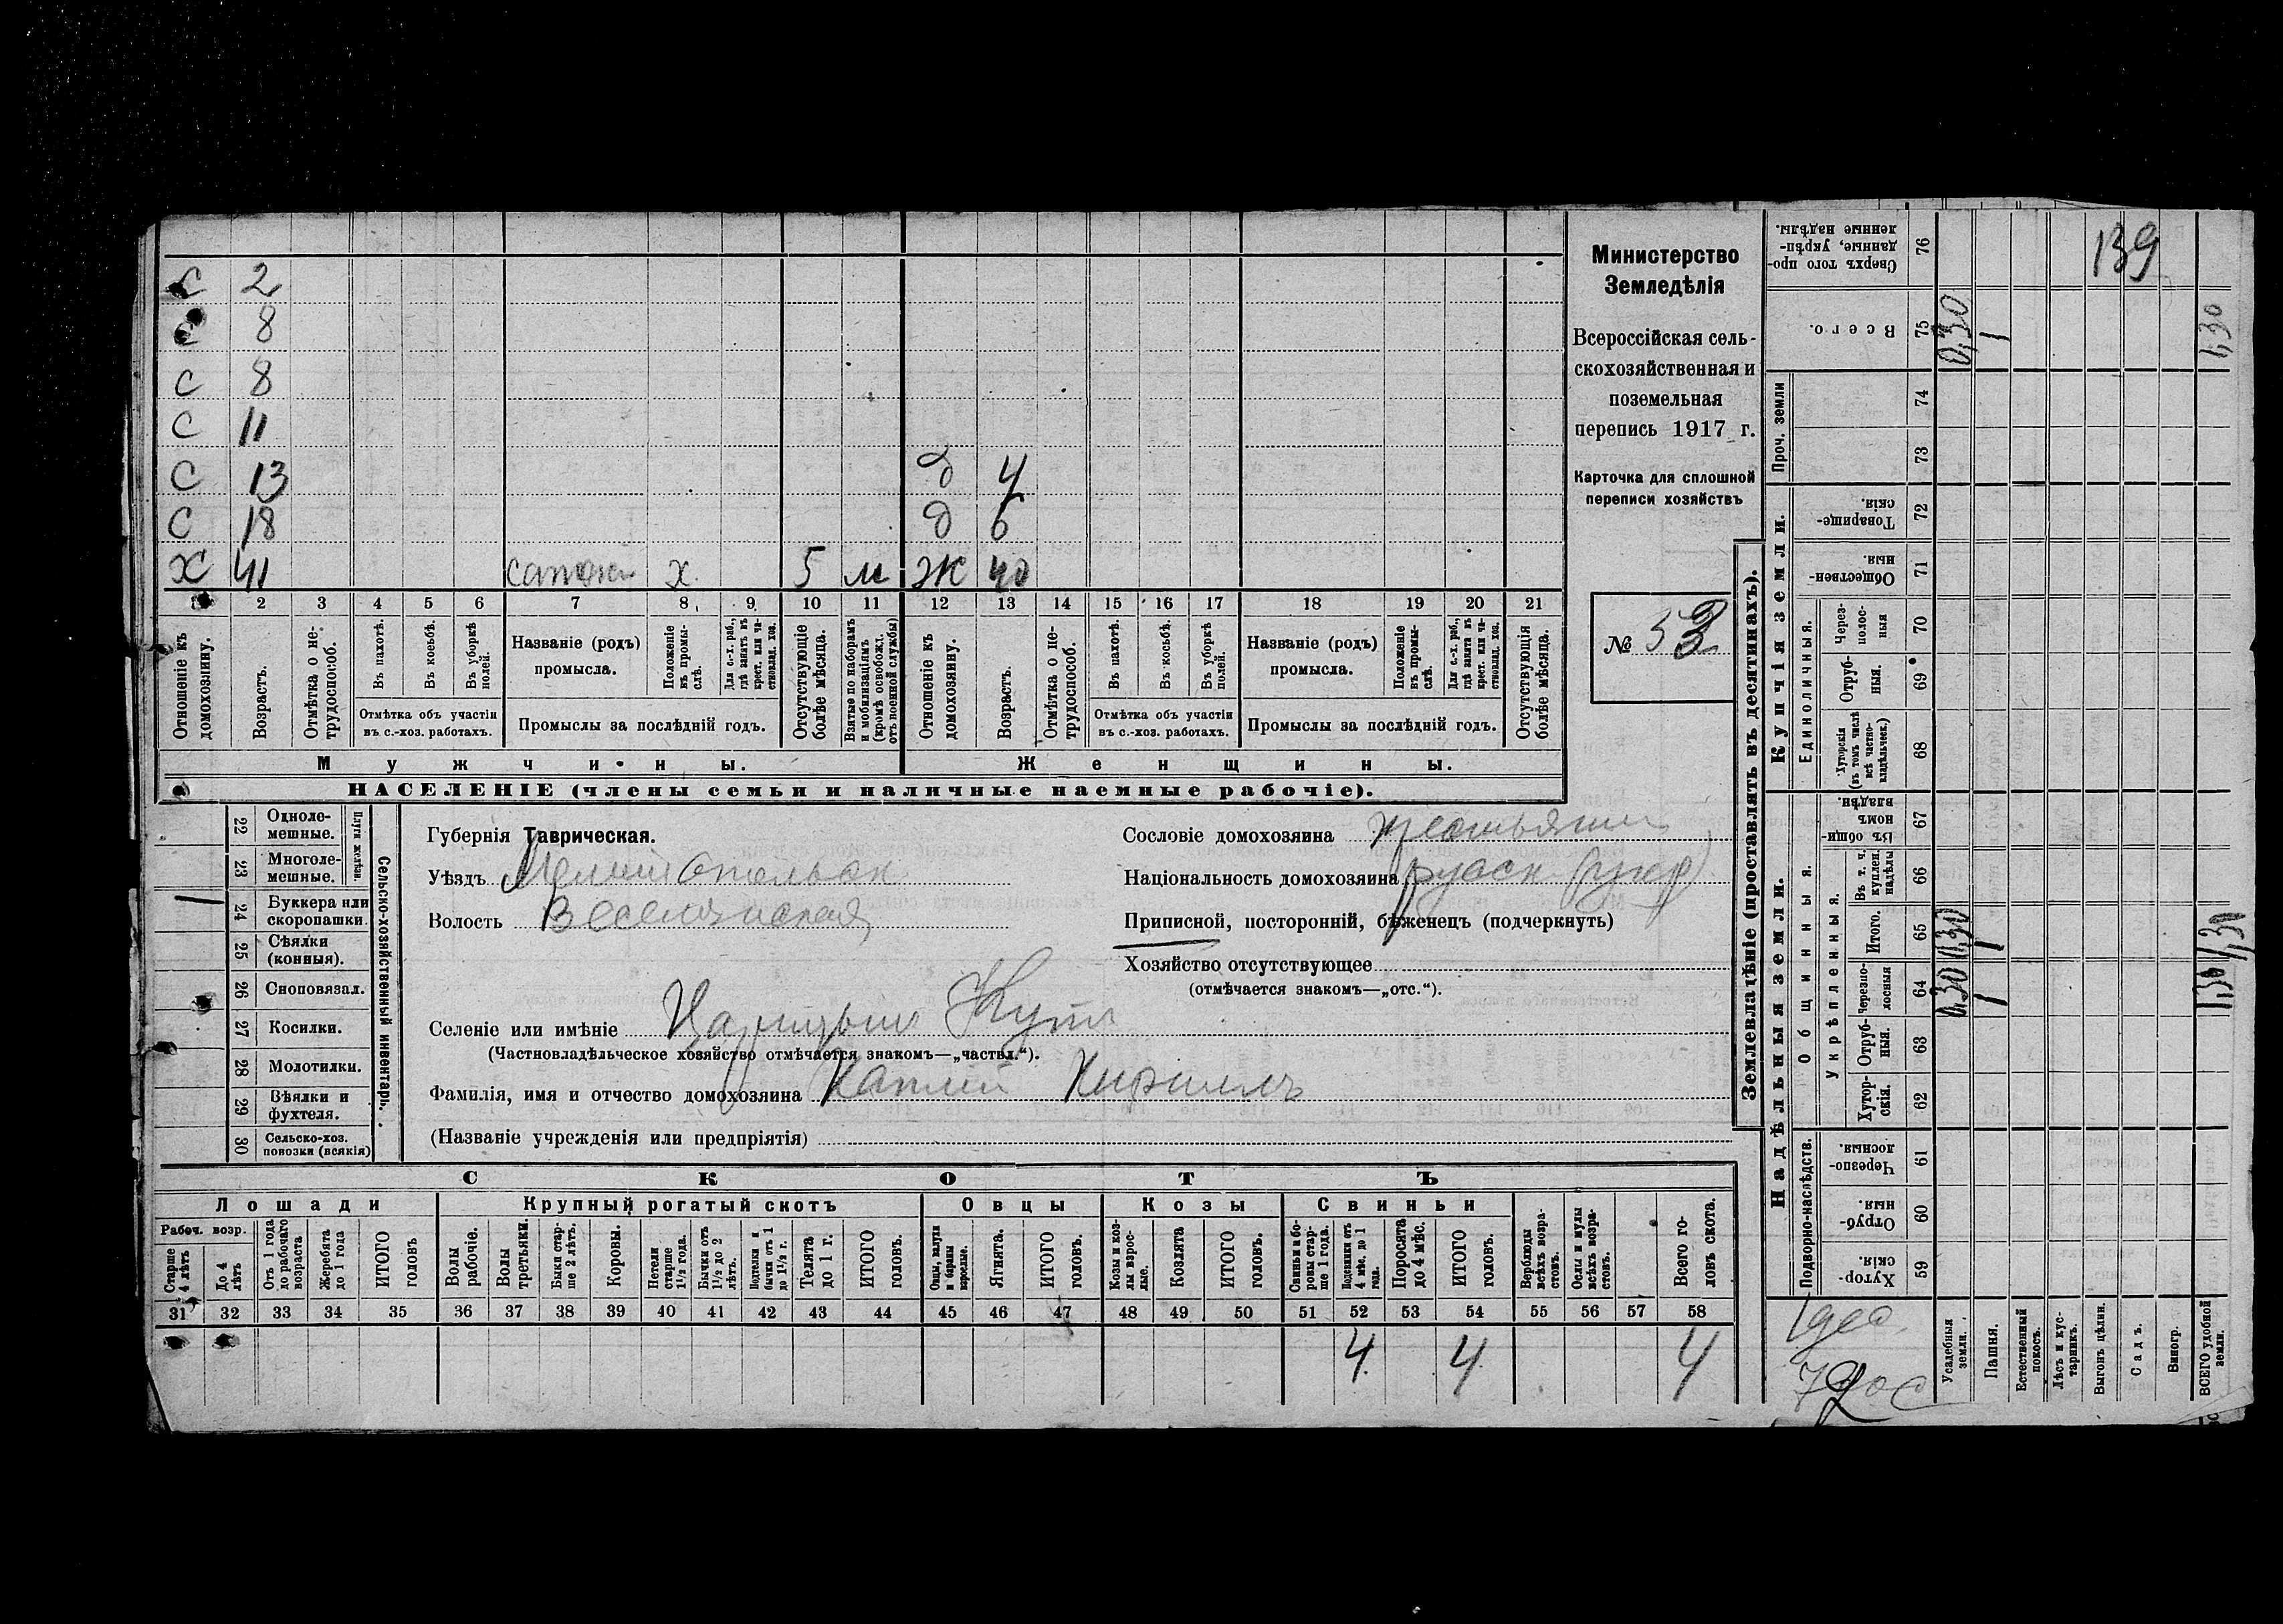 С 2
С 8
С 8
С 11
С 13 д 4
С 18 д 6
Х 41 сапожн х. 5 м Ж 40
1 2 3 4 5 6 7 8 9 10 11 12 13 14 15 16 17 18 19 20 21
Отношеніе къ домохозяину.
Возрастъ.
Отмѣтка о не-
трудоспособ.
Въ пахотѣ.
Въ косьбѣ.
Въ уборкѣ полей.
Отмѣтка объ участіи
въ с.-хоз. работахъ.
Названіе (родъ)
промысла.
Положеніе въ промы-
слѣ.
Для с.-х. раб., гдѣ занятъ въ крест. или ча-
стновлад. хоз.
Промыслы за послѣдній годъ.
Отсутствующіе болѣе мѣсяца.
Взятые по наборамъ и мобилизаціямъ (кромѣ освобожд. отъ военной службы)
Отношеніе къ домохозяину.
Возрастъ.
Отмѣтка о не-
трудоспособ.
Въ пахотѣ.
Въ косьбѣ.
Въ уборкѣ полей.
Отмѣтка объ участіи
въ с.-хоз. работахъ.
Названіе (родъ)
промысла.
Положеніе въ промы-
слѣ.
Для с.-х. раб., гдѣ занятъ въ крест. или ча-
стновлад. хоз.
Промыслы за послѣдній годъ.
Отсутствующія болѣе мѣсяца.
Мужчины.
Женщины.
НАСЕЛЕНІЕ (члены семьи и наличные наемные рабочіе).
Министерство
Земледѣлія
Всероссійская сель-
скохозяйственная и
поземельная
перепись 1917 г.
Карточка для сплошной
переписи хозяйствъ
№ 53
22 Одноле-
мешные.
23 Многоле-
мешные.
Плуги желѣзн.
24 Буккера или
скоропашки.
25 Сѣялки
(конныя).
26 Сноповязал.
27 Косилки.
28 Молотилки.
29 Вѣялки и
фухтеля.
30 Сельско-хоз.
повозки (всякія)
Сельско-хозяйственный инвентарь.
Губернія Таврическая.
Уѣздъ Мелитопольск
Волость Веселянская
Сословіе домохозяина крестьянин
Національность домохозяина русск (укр)
Приписной, посторонній, бѣженецъ (подчеркнуть)
Хозяйство отсутствующее
(отмѣчается знакомъ—„отс.“).
Селеніе или имѣніе Царицын Кут
(Частновладѣльческое хозяйство отмѣчается знакомъ—„частвл.“).
Фамилія, имя и отчество домохозяина Каплій Кирилъ
(Названіе учрежденія или предпріятія)
СКОТЪ
Лошади
Крупный рогатый скотъ
Овцы
Козы
Свиньи
Рабоч. возр.
Старше 4 лѣтъ
До 4 лѣтъ
Отъ 1 года до рабочаго возраста
Жеребята до 1 года
ИТОГО головъ
Волы рабочіе.
Волы третьяки.
Быки стар-
ше 2 лѣтъ.
Коровы.
Нетели старше 1½ года.
Бычки отъ 1½ до 2 лѣтъ.
Подтелки и бычки отъ 1 до 1½ г.
Телята до 1 г.
ИТОГО головъ.
Овцы, валухи и бараны взрослые.
Ягнята.
ИТОГО головъ.
Козы и коз-
лы взрос-
лые.
Козлята
ИТОГО головъ.
Свиньи и бо-
ровы стар-
ше 1 года.
Подсвинки отъ 4 мѣс. до 1 года.
Поросята до 4 мѣс.
ИТОГО головъ.
Верблюды всѣхъ возра-
стовъ.
Ослы и мулы всѣхъ возра-
стовъ.
Всего го-
ловъ скота.
31 32 33 34 35 36 37 38 39 40 41 42 43 44 45 46 47 48 49 50 51 52 53 54 55 56 57 58
4 4 4
Землевладѣніе (проставлять въ десятинахъ).
Надѣльныя земли.
Купчія земли.
Проч. земли
Подворно-наслѣдств.
Общинныя.
Укрѣпленныя.
Единоличныя.
Хутор-
скія. 59
Отруб-
ныя. 60
Черезпо-
лосныя. 61
Хутор-
скія. 62
Отруб-
ныя. 63
Черезпо-
лосныя 64
Итого. 65
Въ т. ч. куплен. надѣлы 66
Въ общин-
номъ владѣн. 67
Хуторскія (въ томъ числѣ всѣ частно-
владѣльческ.) 68
Отруб-
ныя. 69
Через-
полос-
ныя 70
Обществен-
ныя. 71
Товарище-
скія. 72
73
74
Всего. 75
Сверхъ того про-
данные, укрѣп-
ленные надѣлы. 76
139
Усадебныя земли. 0,30 0,30 0,30
Пашня. 1 1 1
Естественный покосъ.
Лѣсъ и кус-
тарникъ.
Выгонъ цѣлин.
Садъ.
Виногр.
ВСЕГО удобной земли. 1,30 1,30 1,30
1 дес.